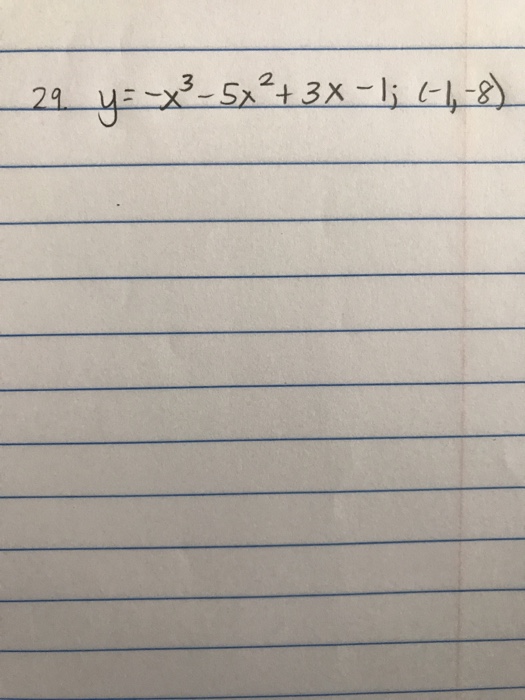 29. y = -x³ - 5x² + 3x - 1; (-1, -8)